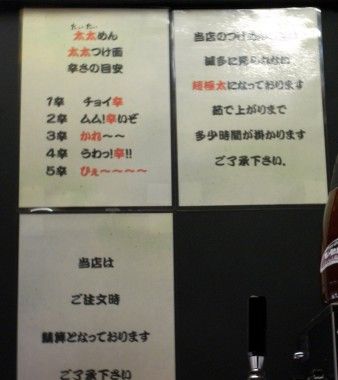 たいたい
太太めん
太太つけ面
辛さの目安
1辛 チョイ辛
2辛 ムム!辛いぞ
3辛 かれ〜〜
4辛 うわっ!辛!!
5辛 ひぇ〜〜〜〜
当店のつけ
滅多に見られない
超極太になっております
茹で上がりまで
多少時間が掛かります
ご了承下さい。
当店は
ご注文時
となっております
ご了承下さい